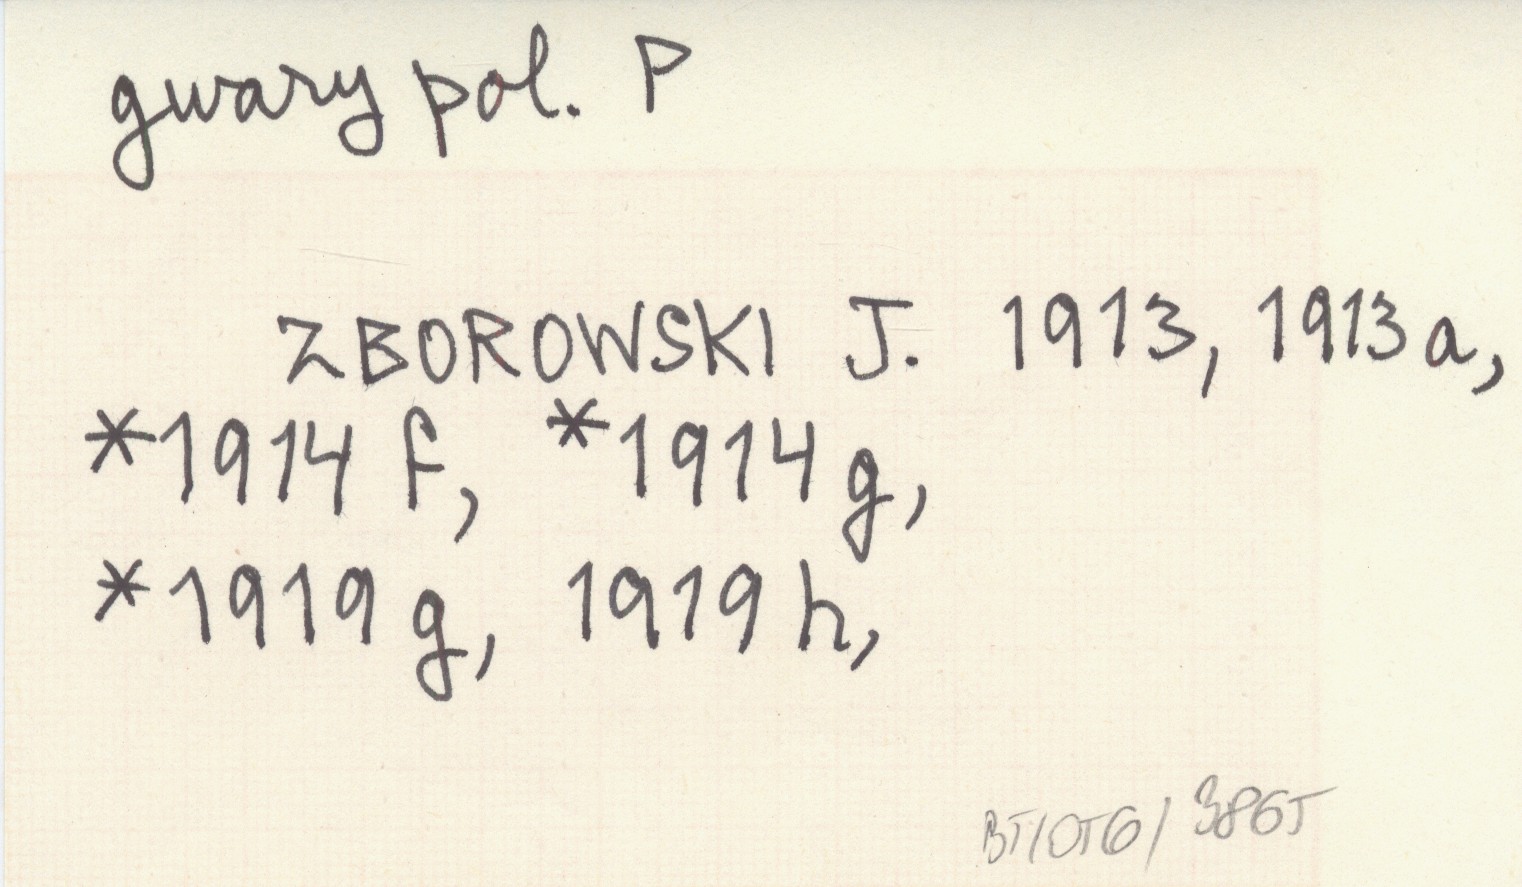 gwary pol. P
ZBOROWSKI J. 1913, 1913a,
*1914 f, *1914 g,
*1919 g, 1919 h,
BT/OTG/3865